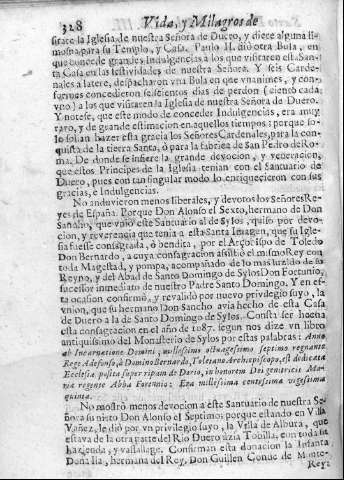 328 Vida, y Milagros de
sitare la Iglesia de nuestra Señora de Duero, y diere alguna li-
mosna para su Templo, y Casa. Paulo II. diò otra Bula, en
que concede grandes Indulgencias à los que visitaren esta San-
ta Casa en las festividades de nuestra Señora. Y seis Carde-
nales a latere, despacharon vna Bula en que vnanimes, y con-
formes concedieron seiscientos dias de perdon (ciento cada
vno) a los que visitaren la Iglesia de nuestra Señora de Duero.
Y notese, que este modo de conceder Indulgencias, era muy
raro, y de grande estimacion en aquellos tiempos; porque so-
lo solian hazer esta gracia los Señores Cardenales, para la con-
quista de la tierra Santa, ò para la fabrica de San Pedro de Ro-
ma. De donde se infiere la grande devocion, y veneracion,
que estos Principes de la Iglesia tenian con el Santuario de
Duero, pues con tan singular modo lo enriquecieron con sus
gracias, e Indulgencias.
No anduvieron menos liberales, y devotos los Señores Re-
yes de España. Porque Don Alonso el Sexto, hermano de Don
Sancho, que vniò este Santuario al de Sylos, quiso por devo-
cion, y reverencia que tenia a esta Santa Imagen, que su Igle-
sia fuesse consagrada, ò bendita, por el Arçobispo de Toledo
Don Bernardo, a cuya consagracion assistiò el mismo Rey con
toda Magestad, y pompa, acompañado de lo mas luzido de su
Reyno, y del Abad de Santo Domingo de Sylos Don Fortunio,
sucessor immediato de nuestro Padre Santo Domingo. Y en es-
ta ocasion confirmò, y revalidò por nuevo privilegio suyo, la
vnion, que su hermano Don Sancho avia hecho de esta Casa
de Duero a la de Santo Domingo de Sylos. Consta ser hecha
esta consagracion en el año de 1087. segun nos dize vn libro
antiquissimo del Monasterio de Sylos por estas palabras: Anno
ab Incarnatione Domini, millesimo octuagesimo septimo regnante
Rege Adefonso, à Domino Bernardo, Toletano Archiepiscopo, est dedicata
Ecclesia posita super ripam de Dorio, in honorem Dei genitricis Ma-
riæ regente Abba Fortunio; Era millesima centesima vigesima
quinta.
No mostrò menos devocion à este Santuario de nuestra Se-
ñora su nieto Don Alonso el Septimo; porque estando en Villa
Yañez, le diò por vn privilegio suyo, la Villa de Albura, que
estava de la otra parte del Rio Duero àzia Tobilla, con toda su
hazienda, y vassallage. Confirman esta donacion la Infanta
Doña hermana del Rey. Don Guillen Conde de Monte-
Rey: